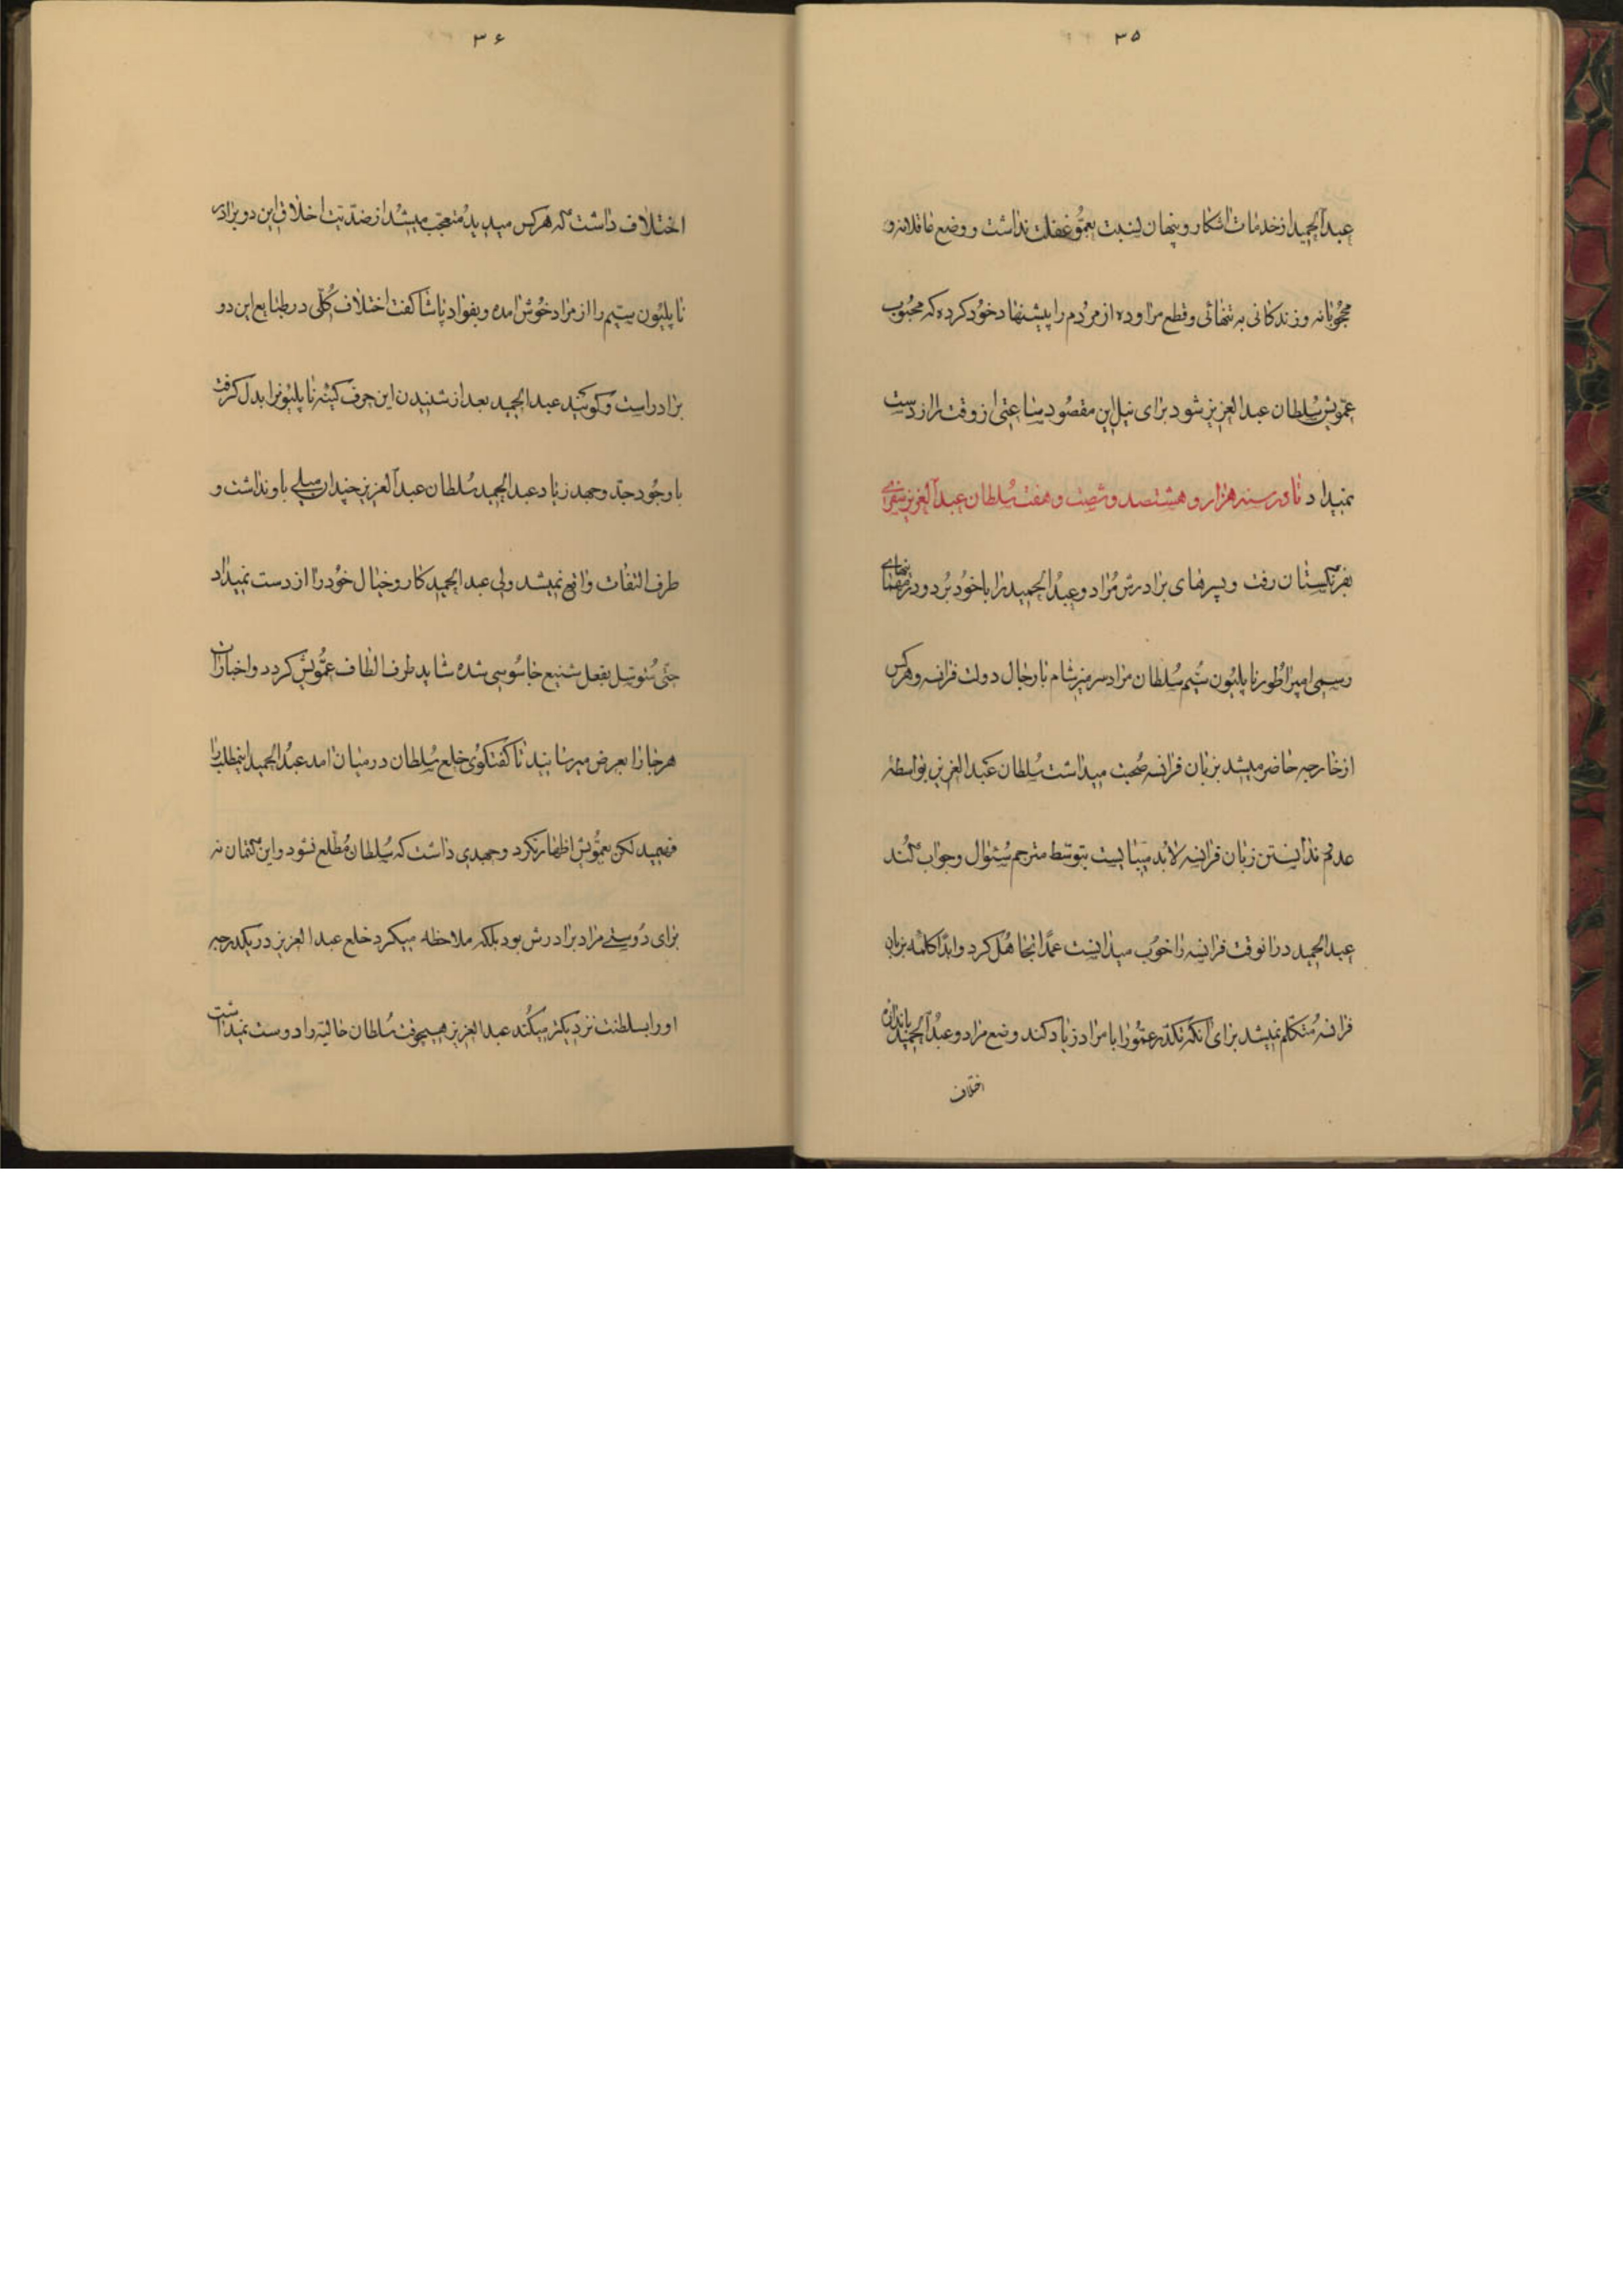 ۳۵
عبدالحمید از خدمات اشکار و پنهان نسبت بعمو غفلت نداشت و وضع عاقلانه و
محجوبانه و زندکانی به تنهائی و قطع مراوده از مردم را پیشنهاد خود کرده که محبوب
عمویش سلطان عبدالعزیز شود برای نیل این مقصود ساعتی از وقت را از دست
نمیداد تا در سنه هزار و هشتصد و شصت و هفت سلطان عبدالعزیز بسفرای
بفرنکستان رفت و پسرهای برادرش مراد و عبدالحمید را با خود برد و در مهمانیهای
رسمی امپراطور ناپلیون سیم سلطان مراد سر میز شام با رجال دولت فرانسه و هرکس
از خارجه حاضر میشد بزبان فرانسه صحبت میداشت سلطان عبدالعزیز بواسطه
عدم ندانستن زبان فرانسه لابد میبایست بتوسط مترجم سئوال و جواب کند
عبدالحمید در انوقت فرانسه را خوب میدانست عمداً تجاهل کرد و ابداً کلمهٔ بزبان
فرانسه متکلم نمیشد برای انکه تکدر عمو را با مراد زیاد کند وضع مراد و عبدالحمید باندازه
اختلاف
۳۶
اختلاف داشت که هرکس میدید متعجب میشد از ضدیت اخلاق این دو برادر
ناپلیون سیم را از مراد خوش امده و بفواد پاشا کفت اختلاف کلی در طبایع این دو
برادر است و کویند عبدالحمید بعد از شنیدن این حرف کینه ناپلیونرا بدل کرفت
با وجود جد و جهد زیاد عبدالحمید سلطان عبدالعزیز چندان میلی باو نداشت و
طرف التفات واقع نمیشد ولی عبدالحمید کار و خیال خود را از دست نمیداد
حتی متوسل بفعل شنیع جاسوسی شده شاید طرف الطاف عمویش کردد و اخبارات
هرجا را بعرض میرسانید تا کفتکوی خلع سلطان در میان امد عبدالحمید اینمطلب را
فهمید لکن بعمویش اظهار نکرد و جهدی داشت که سلطان مطلع نشود و این کتمان نه
برای دوستی مراد برادرش بود بلکه ملاحظه میکرد خلع عبدالعزیز در یکدرجه
او را بسلطنت نزدیکتر میکند عبدالعزیز هیچوقت سلطان حالیه را دوست نمیداشت